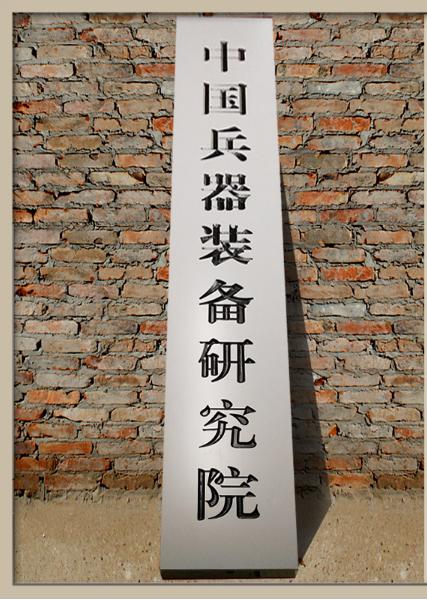 中国兵器装备研究院